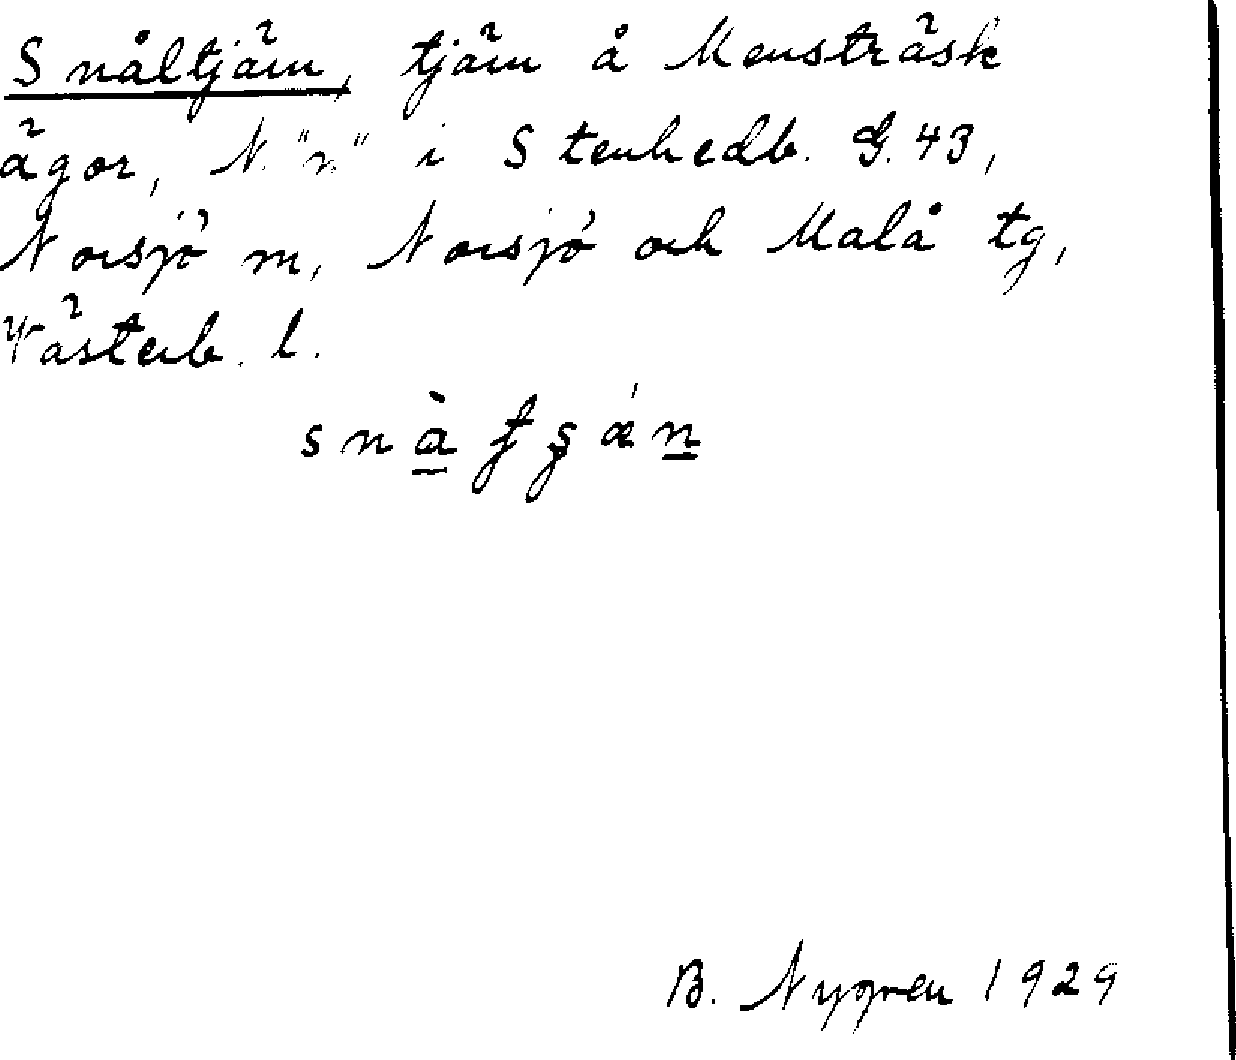 Snåltjärn, tjärn å Mensträsk
ägor, N. "n" i Stenhedb. G. 43,
Norsjö m, Norsjö och Malå tg,
Västerb. l.
B. Nygren 1929